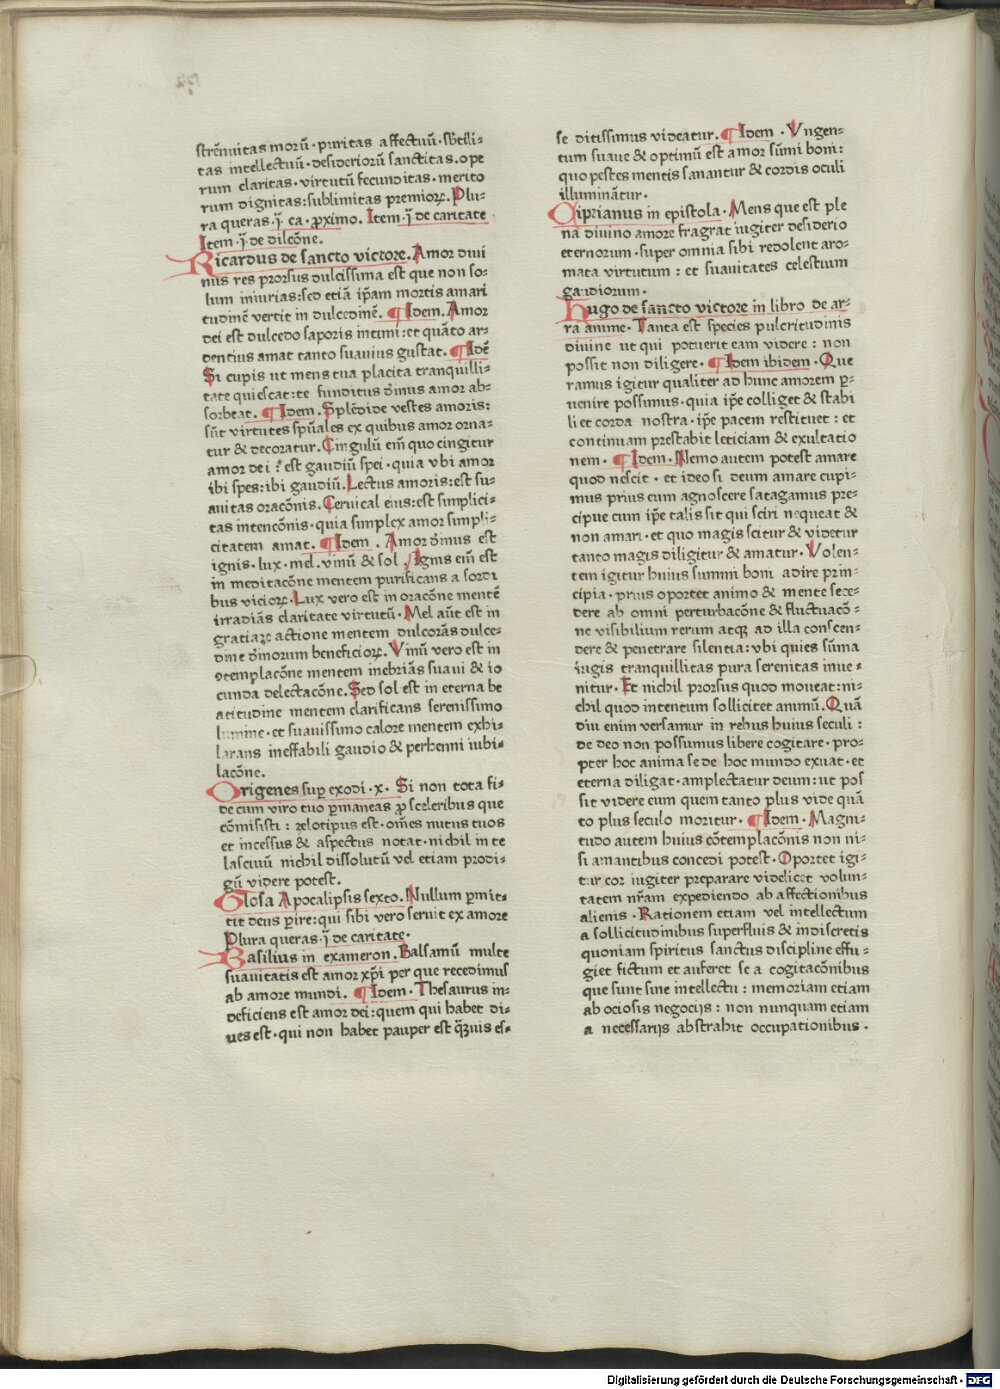 strēnuitas morū · puritas affectuū · sb̄tili⸗
tas intellectuū · desideriorū sanctitas . ope
rum claritas · virtutū fecunditas · merito
rum dignitas : sublimitas premioꝝ . Plu⸗
ra queras · ī ca · ꝓximo . Item · ī de caritate
Item · ī de dilcōne .
Ricardus de sancto victore . Amor diui
nus res prorsus dulcissima est que non so⸗
lum iniurias : sed etiā ip̄am mortis amari
tudinē vertit in dulcedinē . ¶ Idem . Amor
dei est dulcedo saporis intimi : et quāto ar⸗
dentius amat tanto suauius gustat . ¶ Idē
Si cupis ut mens tua placita tranquilli⸗
tate quiescat : te funditus diuinus amor ab⸗
sorbeat . ¶ Idem . Splēdide vestes amoris :
sūt virtutes spūales ex quibus amor orna⸗
tur & decoratur . Cingulū em̄ quo cingitur
amor dei : est gaudiū spei · quia vbi amor
ibi spes : ibi gaudiū . Lectus amoris : est su⸗
auitas oracōnis . Ceruical eius : est simplici⸗
tas intencōnis · quia simplex amor simpli⸗
citatem amat . ¶ Idem . Amor diuinus est
ignis · lux · mel · vinū & sol . Ignis em̄ est
in meditacōne mentem purificans a sordi
bus vicioꝝ . Lux vero est in oracōne mentē
irradiās claritate virtutū . Mel aūt est in
gratiaꝝ actione mentem dulcorās dulce⸗
dine diuinorum beneficioꝝ . Vinū vero est in
ꝯtemplacōne mentem inebriās suaui & io
cunda delectacōne . Sed sol est in eterna be
atitudine mentem clarificans serenissimo
lumine · et suauissimo calore mentem exhi⸗
larans ineffabili gaudio & perhenni iubi⸗
lacōne .
Origenes suꝑ exodi · x . Si non tota fi⸗
de cum viro tuo ꝑmaneas ꝓ sceleribus que
cōmisisti : zelotipus est · omēs nutus tuos
et incessus & aspectus notat · nichil in te
lasciuū nichil dissolutū vel etiam prodi⸗
gū videre potest .
Glosa Apocalipsis sexto . Nullum ꝑmit⸗
tit deus ꝑire : qui sibi vero seruit ex amore
Plura queras · ī de caritate .
Basilius in exameron . Balsamū multe
suauitatis est amor xp̄i per que recedimus
ab amore mundi . ¶ Idem . Thesaurus in⸗
deficiens est amor dei : quem qui habet di⸗
ues est . qui non habet pauper est q̄ꝫuis es⸗
se ditissimus videatur . ¶ Idem . Vngen⸗
tum suaue & optimū est amor sūmi boni :
quo pestes mentis sanantur & cordis oculi
illuminātur .
Ciprianus in epistola . Mens que est ple
na diuino amore fragrat iugiter desiderio
eternorum · super omnia sibi redolent aro⸗
mata virtutum : et suauitates celestium
gaudiorum .
Hugo de sancto victore in libro de ar⸗
ra anime . Tanta est species pulcritudinis
diuine ut qui potuerit eam videre : non
possit non diligere . ¶ Idem ibidem . Que
ramus igitur qualiter ad hunc amorem ꝑ⸗
uenire possimus · quia ip̄e colliget & stabi
liet corda nostra · ip̄e pacem restituet : et
continuam prestabit leticiam & exultatio
nem . ¶ Idem . Nemo autem potest amare
quod nescit · et ideo si deum amare cupi⸗
mus prius eum agnoscere satagamus pre⸗
cipue cum ip̄e talis sit qui sciri nequeat &
non amari · et quo magis scitur & videtur
tanto magis diligitur & amatur . Volen⸗
tem igitur huius summi boni adire prin⸗
cipia · prius oportet animo & mente sece⸗
dere ab omni perturbacōne & fluctuacō⸗
ne visibilium rerum atqꝫ ad illa conscen⸗
dere & penetrare silentia : vbi quies sūma
iugis tranquillitas pura serenitas inue⸗
nitur . Et nichil prorsus quod moueat : ni⸗
chil quod intentum sollicitet animū . Quā
diu enim versamur in rebus huius seculi :
de deo non possumus libere cogitare · pro⸗
pter hoc anima se de hoc mundo exuat · et
eterna diligat · amplectatur deum : ut pos
sit videre eum quem tanto plus vide quā
to plus seculo moritur . ¶ Idem . Magni⸗
tudo autem huius cōtemplacōnis non ni⸗
si amantibus concedi potest . Oportet igi⸗
tur cor iugiter preparare videlicet volun⸗
tatem nr̄am expediendo ab affectionibus
alienis . Rationem etiam vel intellectum
a sollicitudinibus superfluis & indiscretis
quoniam spiritus sanctus discipline effu⸗
giet fictum et auferet se a cogitacōnibus
que sunt sine intellectu : memoriam etiam
ab ociosis negocijs : non nunquam etiam
a necessarijs abstrahit occupationibus .
Digitalisierung gefördert durch die Deutsche Forschungsgemeinschaft - DFG